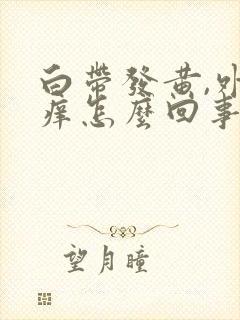 白帶發黄,外
痒怎麼回事
望月瞳